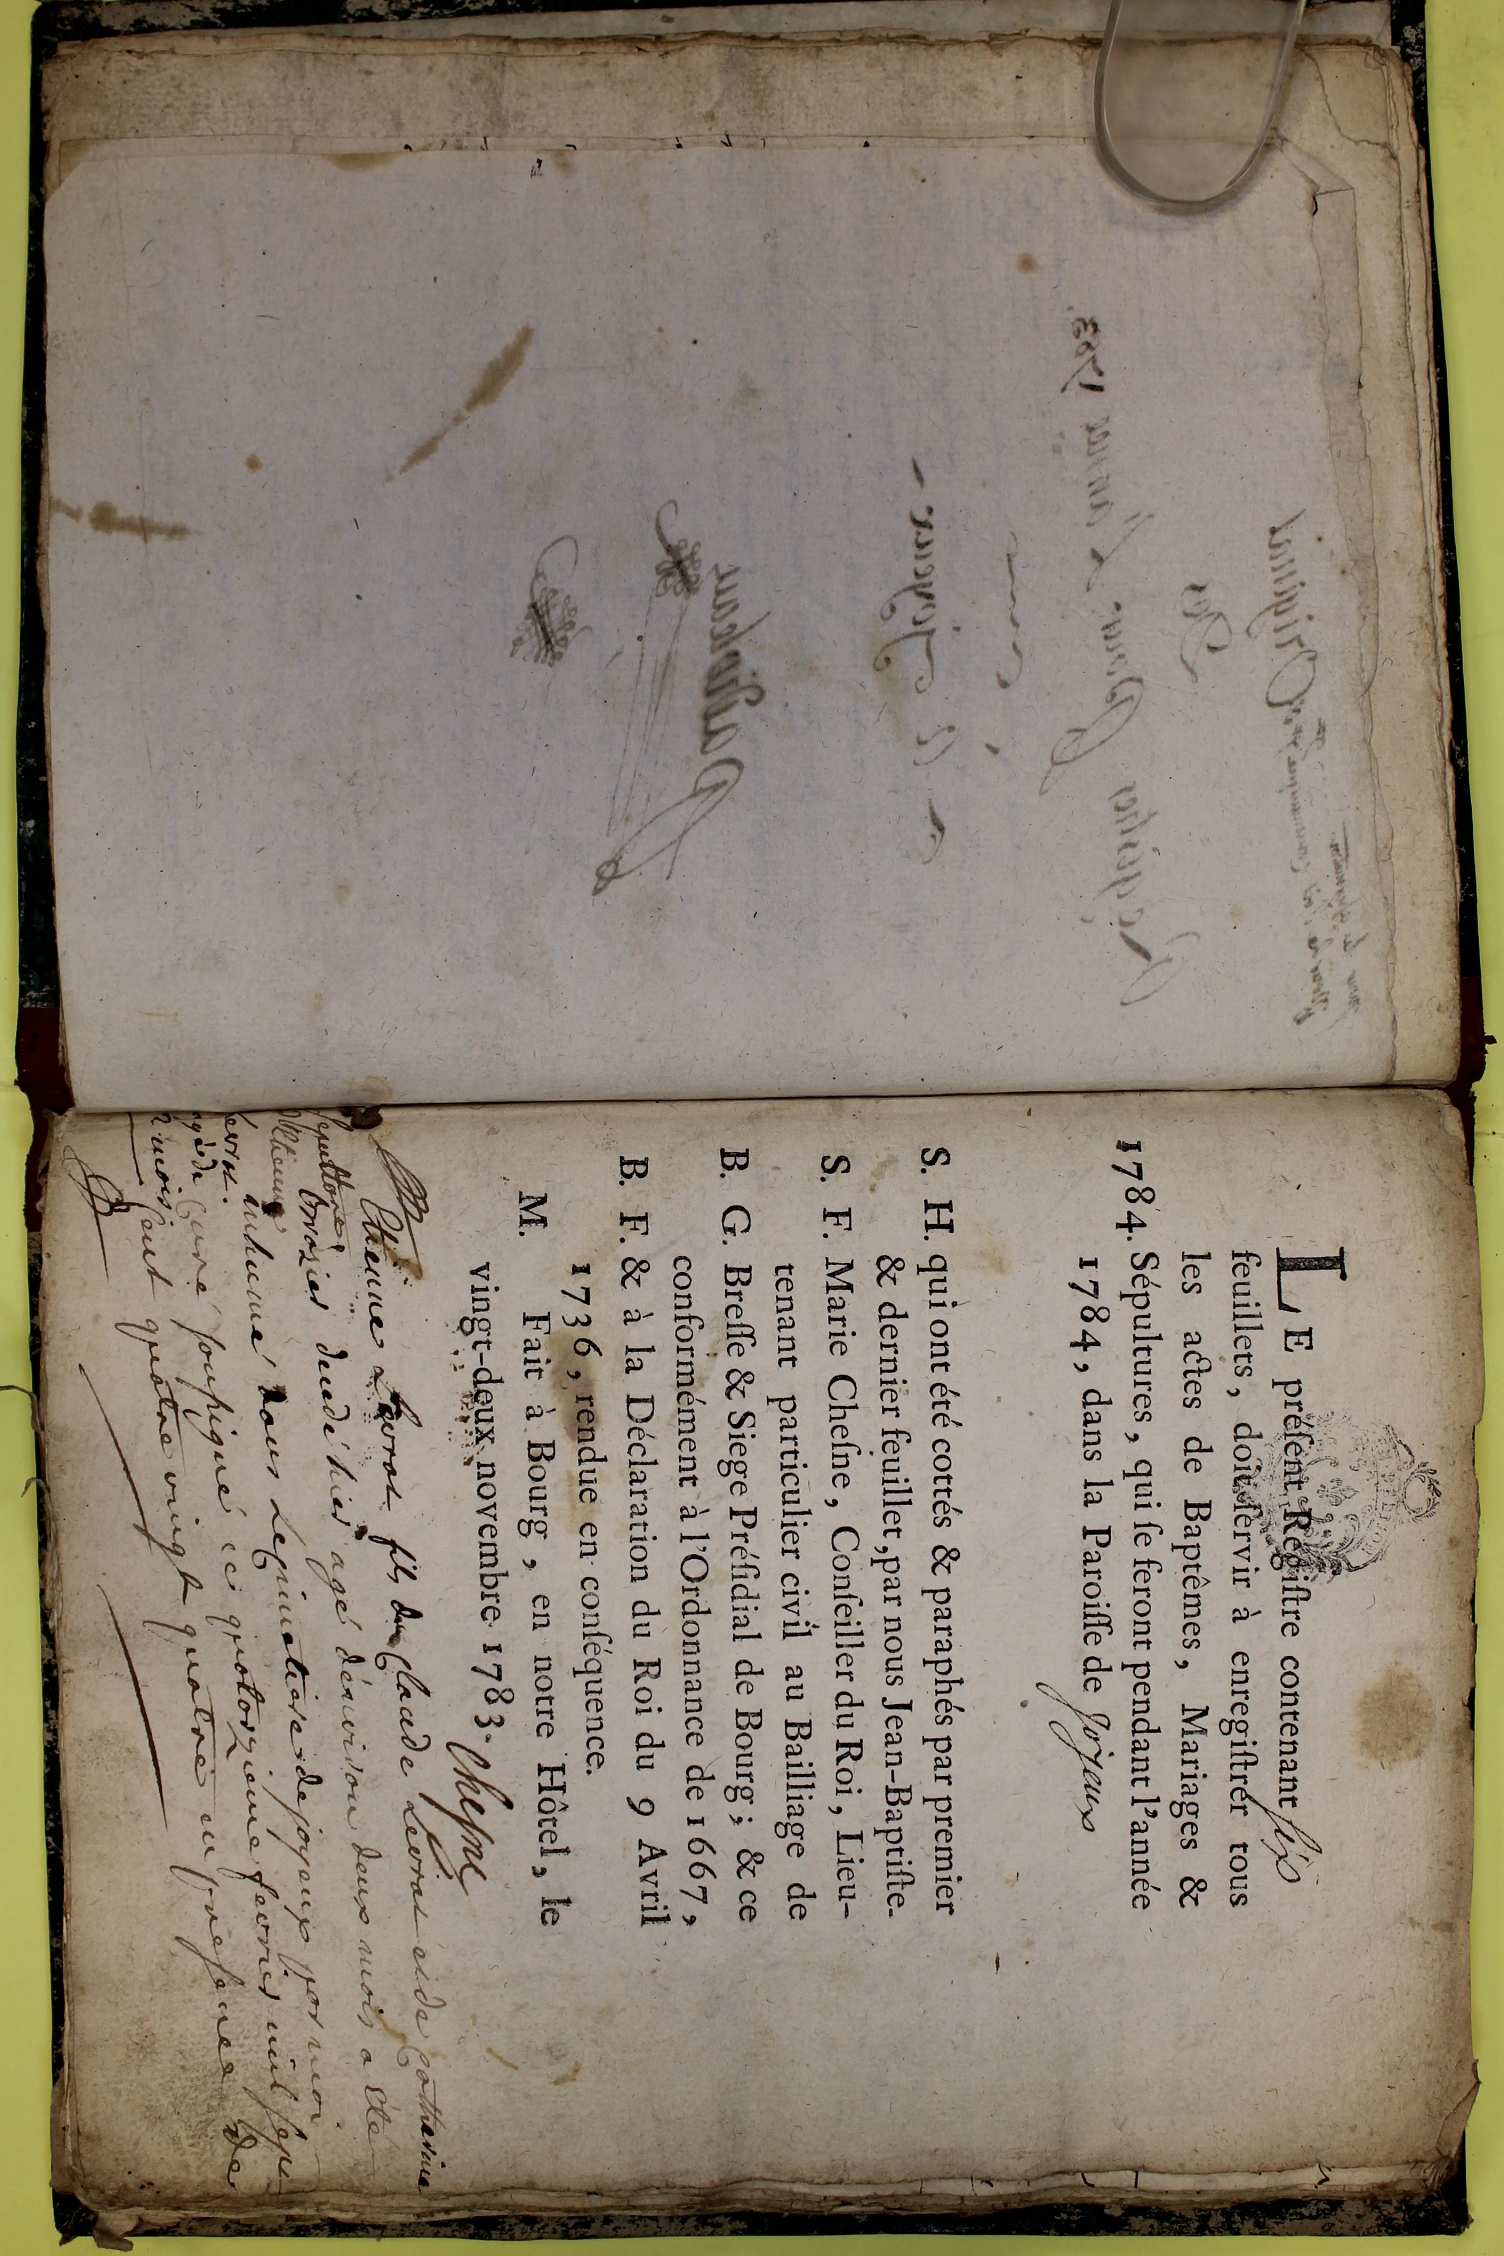 LE préſent Regiſtre contenant ſix
feuillets, doit ſervir à enregiſtrer tous
les actes de Baptêmes, Mariages &
1784. Sépultures, qui ſe feront pendant l'année
1784, dans la Paroiſſe de Joyeux
S. H. qui ont été cottés & paraphés par premier
& dernier feuillet, par nous Jean-Baptiſte-
S. F. Marie Cheſne, Conſeiller du Roi, Lieu-
tenant particulier civil au Bailliage de
B. G. Breſſe & Siege Préſidial de Bourg; & ce
conformément à l'Ordonnance de 1667,
B. F. & à la Déclaration du Roi du 9 Avril
1736, rendue en conſéquence.
M. Fait à Bourg, en notre Hôtel, le
vingt-deux novembre 1783. Cheſne
Etienne Levrat fils de Claude Levrat et de Catherine
Brosier decedé hier agé d'environ deux mois a été
inhumé dans le cimetiere de joyeux par moi
Curé souſsigné ce quatorzieme fevrier mil ſept
cent quatre vingt quatre en preſence de
ſepulture
d'Etienne
Levrat.
agé de
2 mois